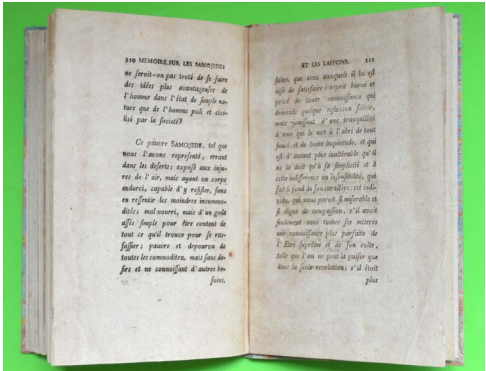 110 MEMOIRE SUR LES SAMOJEDES
ne seroit-on pas tenté de se faire
des idées plus avantageuses de
l'homme dans l'état de simple na-
ture que de l'homme poli et civi-
lisé par la societé?
Ce pauvre SAMOJEDE, tel que
nous l'avons representé, errant
dans les deserts exposé aux inju-
res de l'air, mais ayant un corps
endurci, capable d'y resister, sans
en ressentir les moindres incommo-
dités; mal nourri, mais d'un goût
assés simple pour être content de
tout ce qu'il trouve pour se ras-
sasier; pauvre et depourvu de
toutes les commoditez, mais sans de-
sirs et ne connoissant d'autres be-
soins,
ET LES LAPPONS. 111
soins, que ceux auxquels il lui est
aisé de satisfaire; esprit borné et
privé de toute connoissance qui
demande quelque reflexion suivie,
mais jouissant d'une tranquilité
d'ame qui le met à l'abri de tout
souci et de toute inquietude, et qui
est d'autant plus inalterable qu'il
ne la doit qu'à sa simplicité et à
cette indifference ou insensibilité, qui
fait le fond de son caractère: cet indi-
vidu, qui nous paroit si miserable et
si digne de compassion, s'il avoit
seulement avec toutes ses miseres
une connoissance plus parfaite de
l'Etre suprême et de son culte,
telle que l'on ne peut la puiser que
dans la seule revelation; s'il étoit
plus